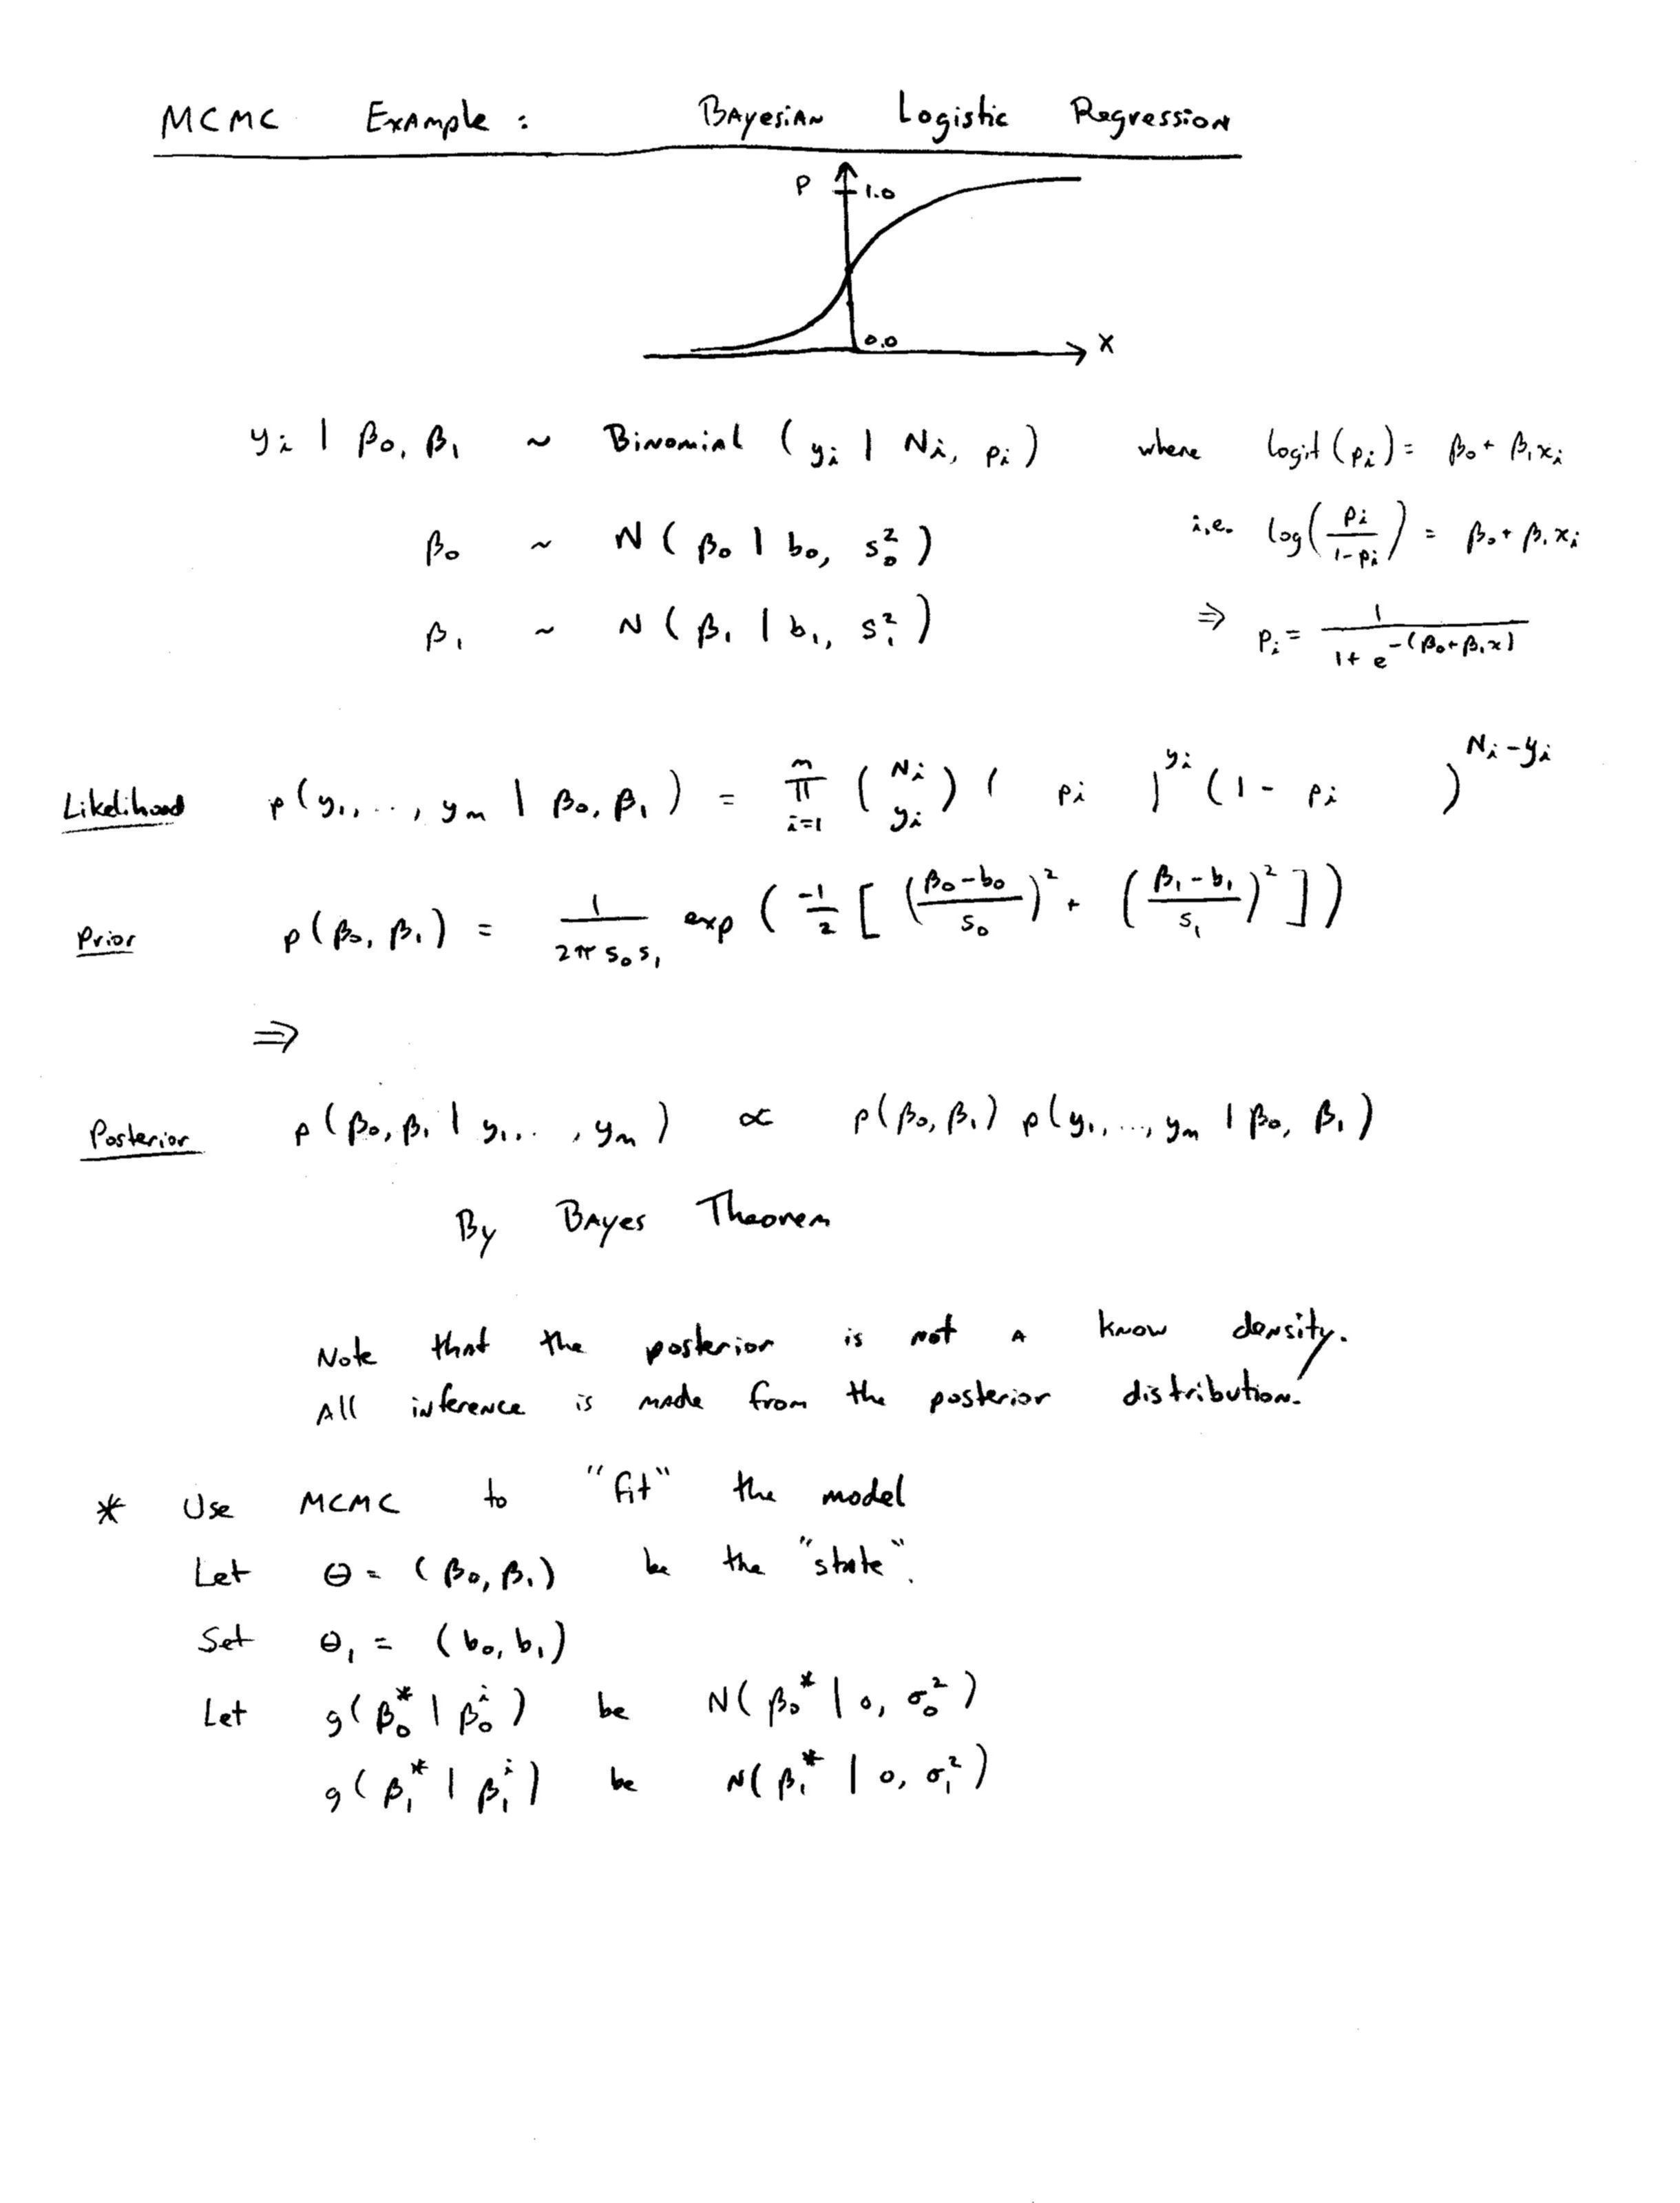 MCMC Example : Bayesian Logistic Regression
P 1.0
0.0 x
y_i | β_0, β_1 ~ Binomial ( y_i | N_i, p_i ) where logit (p_i) = β_0 + β_1 x_i
β_0 ~ N ( β_0 | b_0, s_0^2 ) i.e. log( p_i / 1-p_i ) = β_0 + β_1 x_i
β_1 ~ N ( β_1 | b_1, s_1^2 ) ⇒ p_i = 1 / 1 + e^{-(β_0+β_1x)}
Likelihood p( y_1, ..., y_n | β_0, β_1 ) = ∏_{i=1}^{n} ( N_i y_i ) ( p_i )^{y_i} ( 1 - p_i )^{N_i - y_i}
Prior p( β_0, β_1 ) = 1 / 2π s_0 s_1 exp ( -1/2 [ ( β_0 - b_0 / s_0 )^2 + ( β_1 - b_1 / s_1 )^2 ] )
⇒
Posterior p ( β_0, β_1 | y_1, ..., y_n ) ∝ p( β_0, β_1 ) p( y_1, ..., y_n | β_0, β_1 )
By Bayes Theorem
Note that the posterior is not a know density.
All inference is made from the posterior distribution.
* Use MCMC to "fit" the model
Let θ = ( β_0, β_1 ) be the "state".
Set θ_1 = ( b_0, b_1 )
Let g( β_0^* | β_0^i ) be N( β_0^* | 0, σ_0^2 )
g( β_1^* | β_1^i ) be N( β_1^* | 0, σ_1^2 )